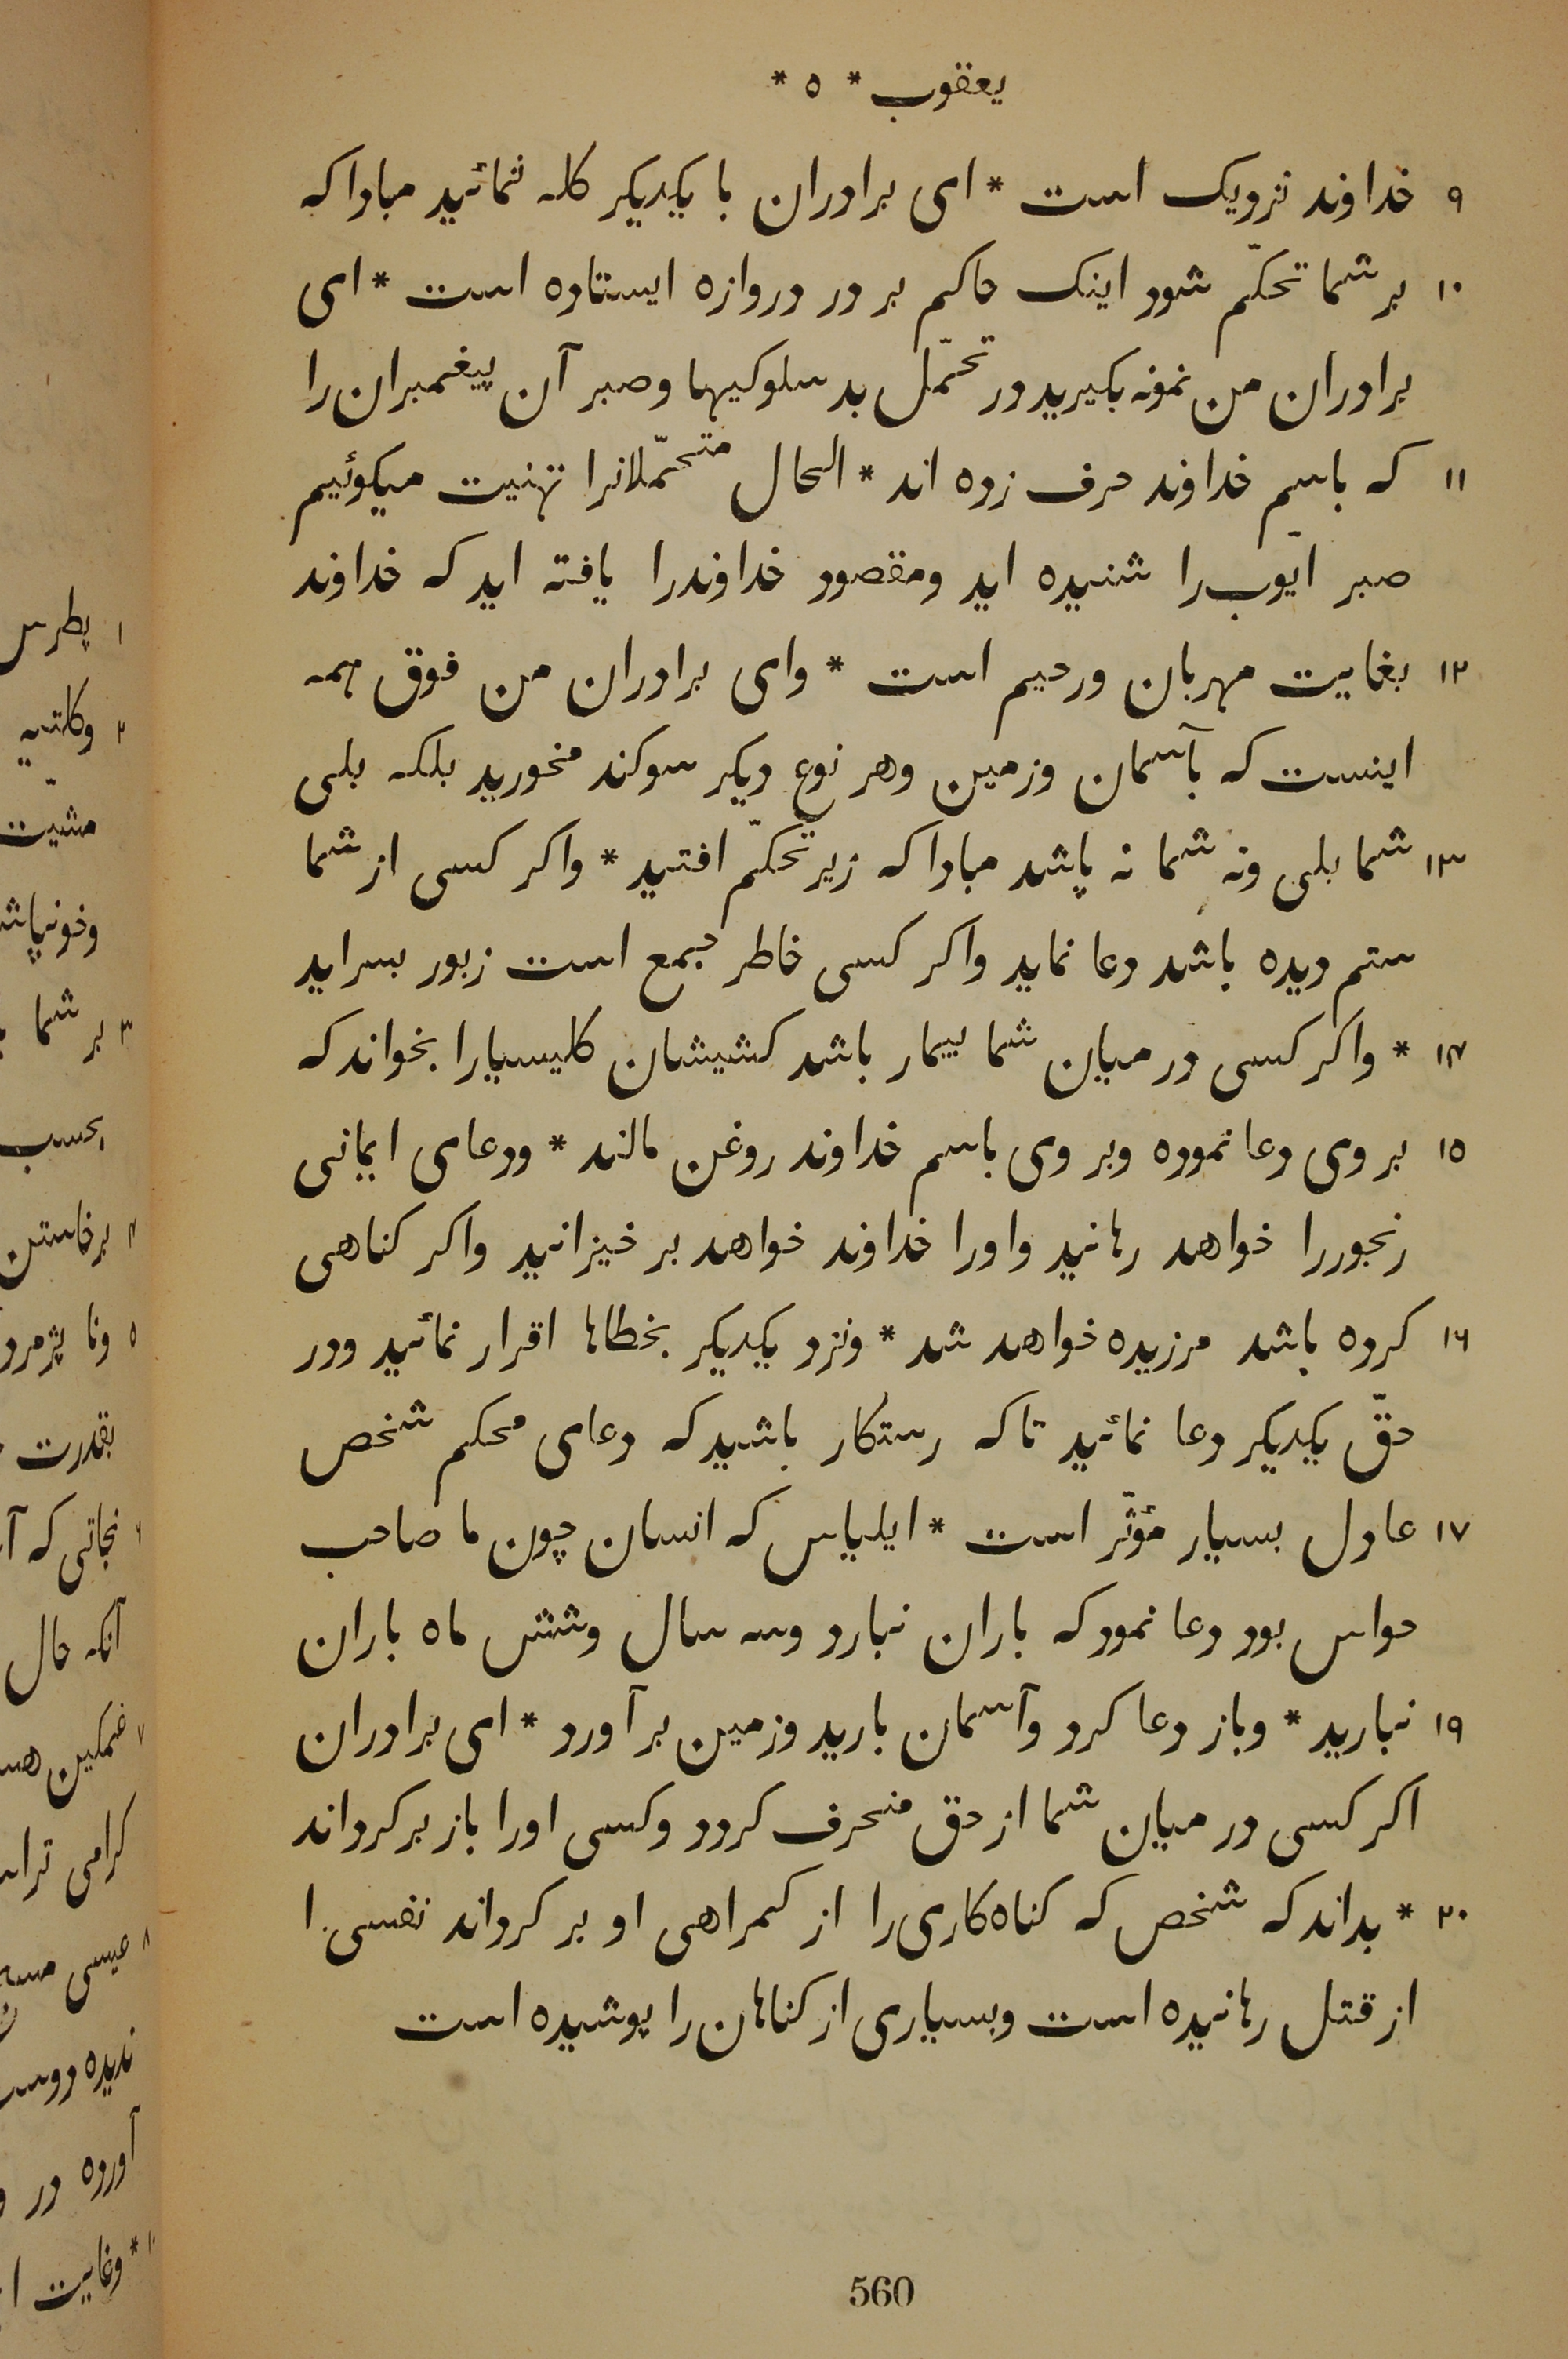 یعقوب * ٥ *
٩ خداوند نزدیک است * ای برادران با یکدیکر کله نمائید مبادا که
١٠ بر شما تحکّم شود اینک حاکم بر در دروازه ایستاده است * ای
برادران من نمونه بکیرید در تحمّل بد سلوکیها وصبر آن پیغمبران را
١١ که باسم خداوند حرف زده اند * الحال متحمّلانرا تهنیت میکوئیم
صبر ایّوب را شنیده اید ومقصود خداوندرا یافته اید که خداوند
١٢ بغایت مهربان ورحیم است * وای برادران من فوق همه
اینست که بآسمان وزمین وهر نوع دیکر سوکند مخورید بلکه بلی
١٣ شما بلی ونه شما نه باشد مبادا که زیر تحکّم افتید * واکر کسی از شما
ستم دیده باشد دعا نماید واکر کسی خاطر جمع است زبور بسراید
١٤ * واکر کسی در میان شما بیمار باشد کشیشان کلیسیارا بخواند که
١٥ بر وی دعا نموده وبر وی باسم خداوند روغن مالند * ودعای ایمانی
رنجوررا خواهد رهانید واورا خداوند خواهد بر خیزانید واکر کناهی
١٦ کرده باشد مرزیده خواهد شد * ونزد یکدیکر بخطاها اقرار نمائید ودر
حقّ یکدیکر دعا نمائید تا که رستکار باشید که دعای محکم شخص
١٧ عادل بسیار مؤثّر است * ایلیاس که انسان چون ما صاحب
حواس بود دعا نمود که باران نبارد وسه سال وشش ماه باران
١٩ نبارید * وباز دعا کرد وآسمان بارید وزمین بر آورد * ای برادران
اکر کسی در میان شما از حق منحرف کردد وکسی اورا باز بر کرداند
٢٠ * بداند که شخص که کناه‌کاری را از کمراهی او بر کرداند نفسی را
از قتل رهانیده است وبسیاری از کناهان را پوشیده است
560
١ پطرس
٢ وکلتیه
مشیّت
وخونپاش
٣ بر شما
بحسب
٤ برخاستن
٥ ونا پژمرد
بقدرت
٦ نجاتی که
آنکه حال
٧ غمکین
کرامی تر
٨ عیسی
ندیده
آورده در
١٠ * وغایت